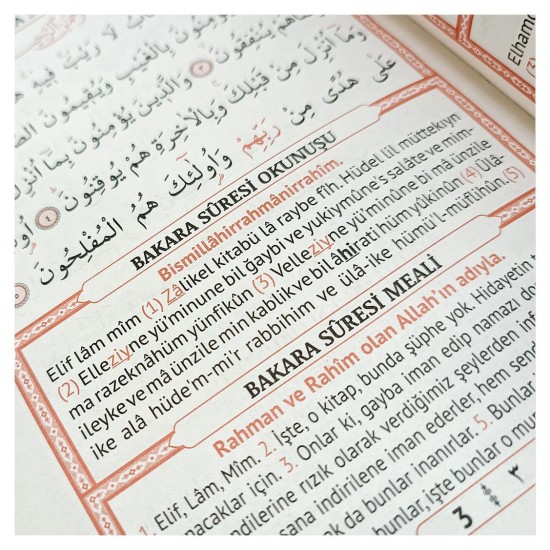 لَا رَيْبَ فِيهِ
ۙ يُؤْمِنُونَ بِالْغَيْبِ وَيُقِيمُونَ
يُنْفِقُونَ ۙ ﴿٣﴾ وَالَّذِينَ يُؤْمِنُونَ بِمَٓا اُنْزِلَ
وَمَٓا اُنْزِلَ مِنْ قَبْلِكَ وَبِالْاٰخِرَةِ هُمْ يُوقِنُونَ ﴿٤﴾
عَلٰى هُدًى مِنْ رَبِّهِمْ وَاُو۬لٰٓئِكَ هُمُ الْمُفْلِحُونَ
BAKARA SÛRESİ OKUNUŞU
Bismillâhirrahmânirrahîm.
Elif lâm mîm (1) Zâlikel kitabü lâ raybe fîh. Hüdel lil müttekıyn
(2) Elleziyne yü'minune bil ğaybi ve yukiymûne's salâte ve mim-
ma razeknâhüm yünfikûn (3) Velleziyne yü'minûne bi mâ ünzile
ileyke ve mâ ünzile min kablik ve bil âhirati hüm yûkinûn (4) Ülâ-
ike alâ hüde'm-mi'r rabbihim ve ülâ-ike hümü'l-müflihûn. (5)
BAKARA SÛRESİ MEALİ
Rahman ve Rahîm olan Allah'ın adıyla.
1. Elif, Lâm, Mîm. 2. İşte, o kitap, bunda şüphe yok. Hidayetin
nacaklar için. 3. Onlar ki, gayba iman edip namazı
ndilerine rızık olarak verdiğimiz şeylerden
sana indirilene iman ederler, hem
ak da bunlar inanırlar. 5. Bunlar
bunlar, işte bunlar o
3 ٣
Elham